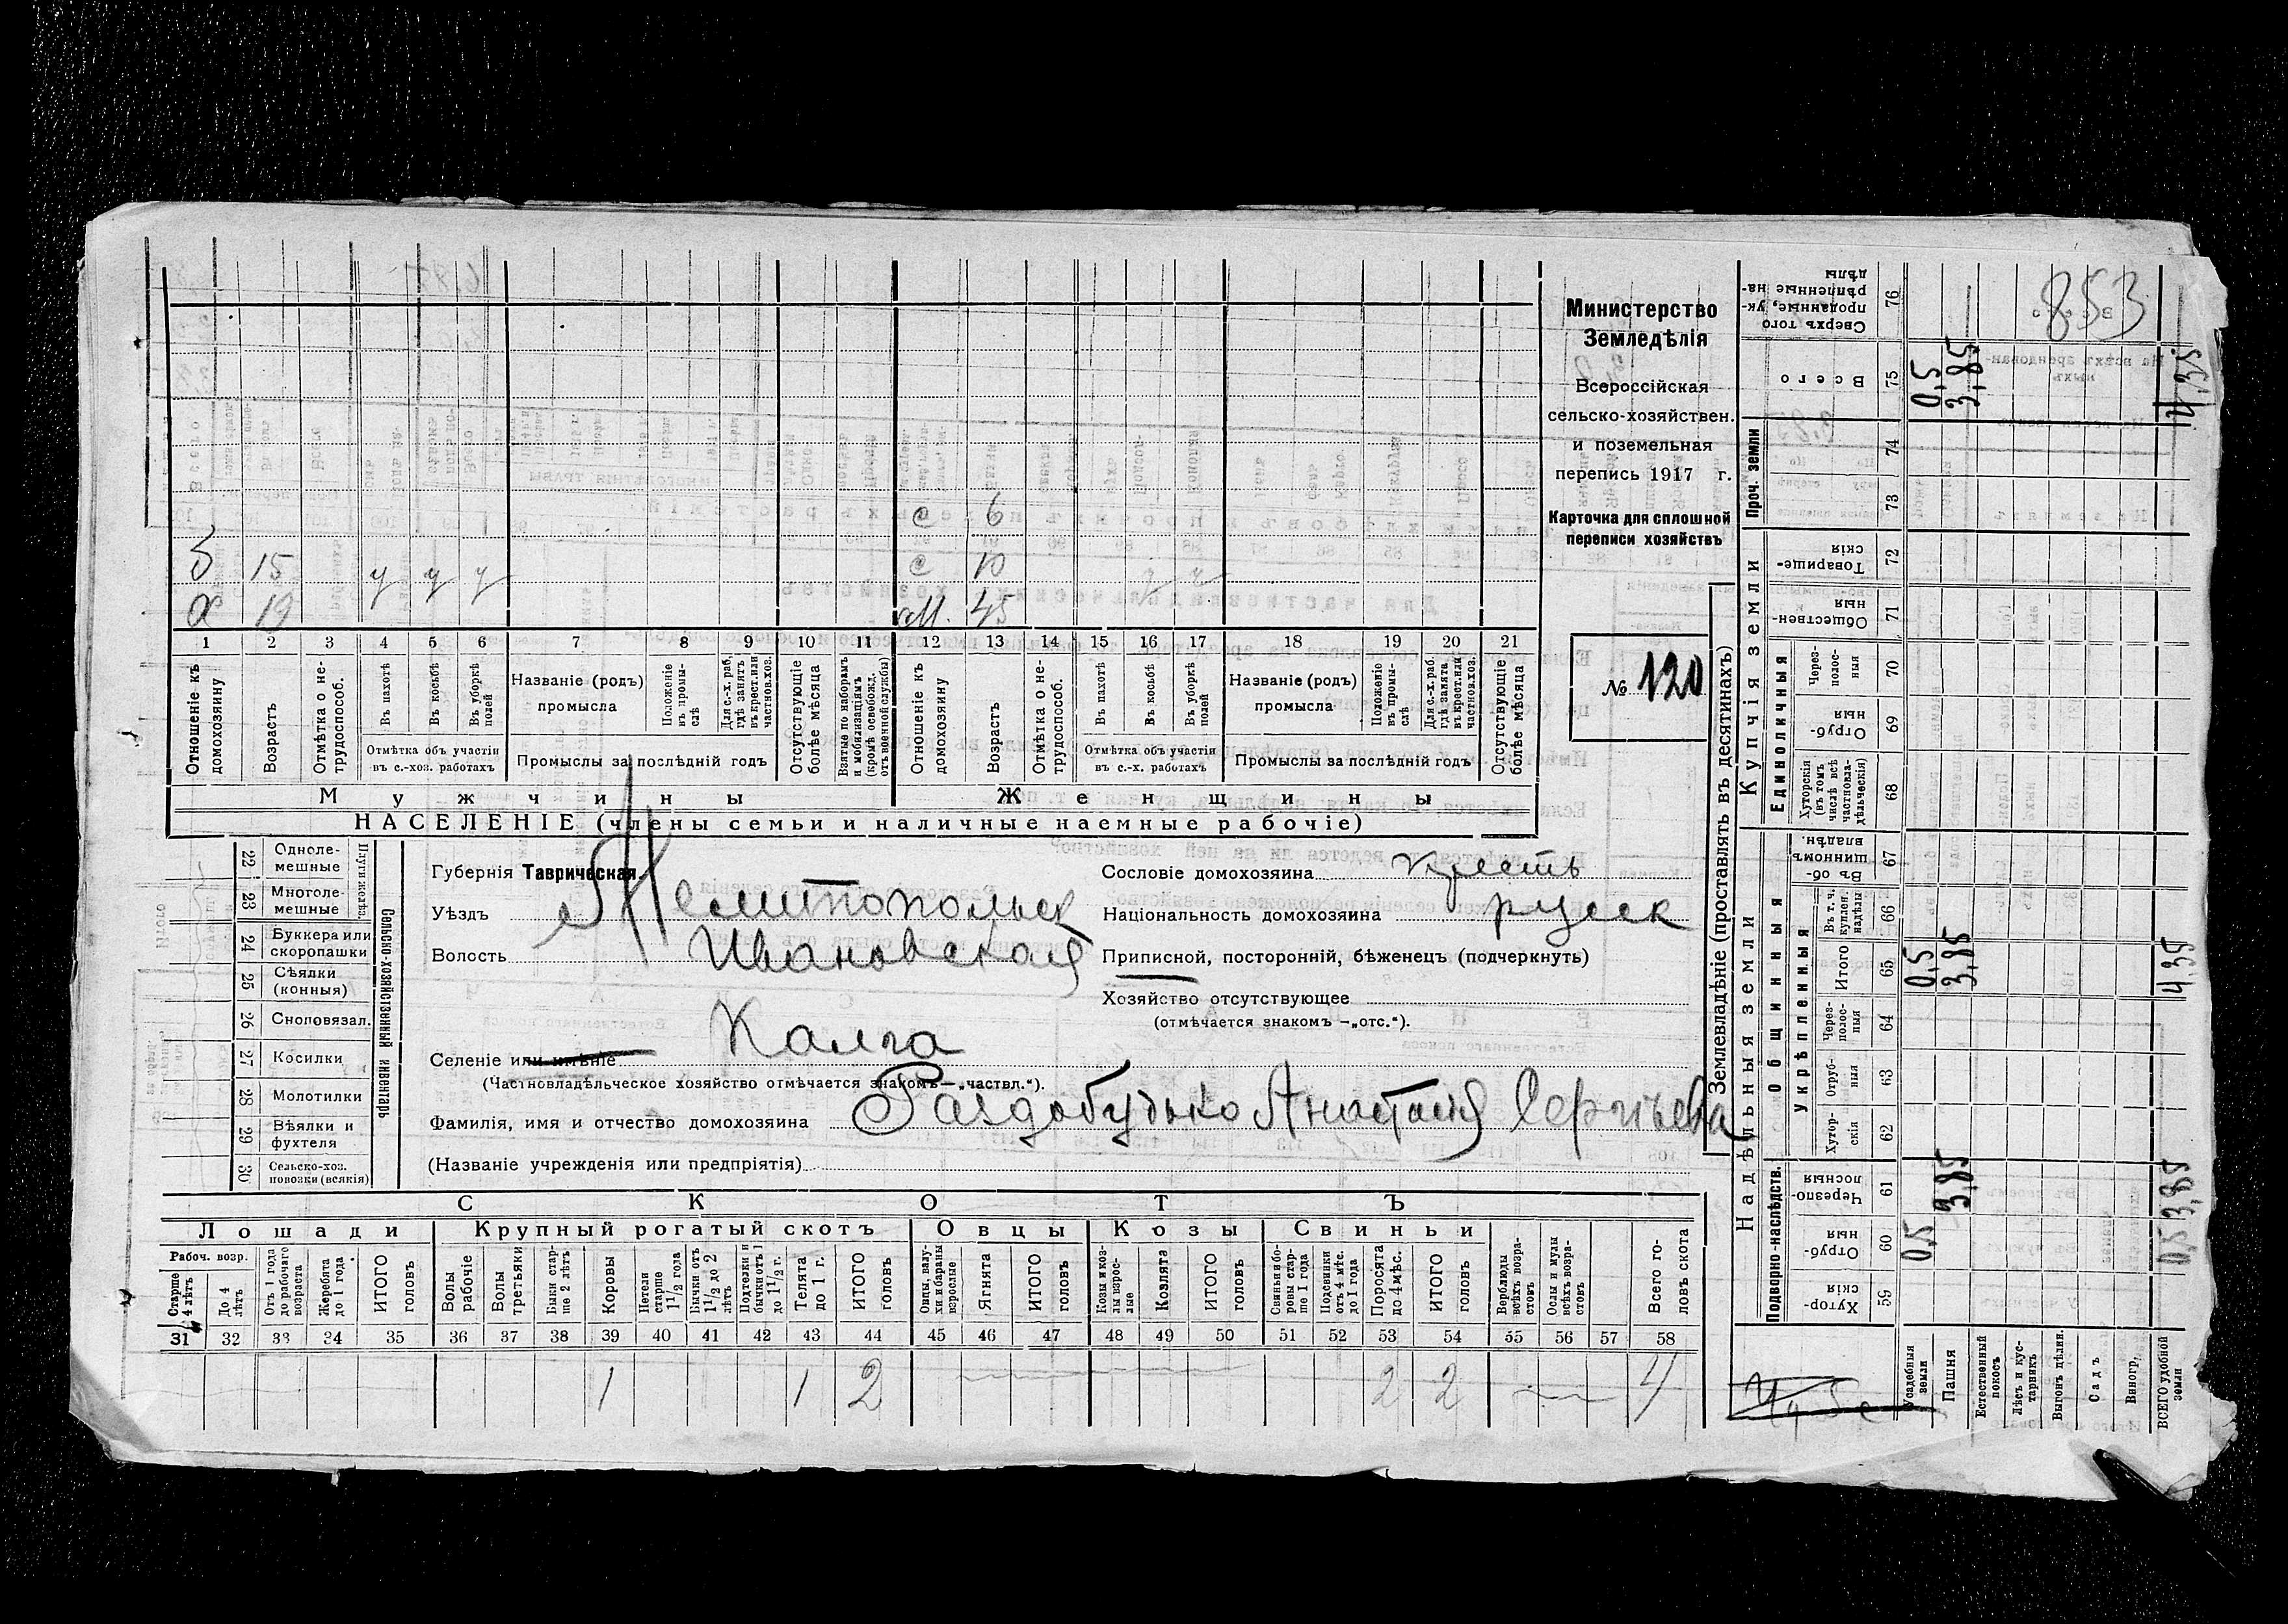 Министерство
Земледѣлія
Всероссійская
сельско-хозяйствен.
и поземельная
перепись 1917 г.
Карточка для сплошной
переписи хозяйствъ
№ 120
с 6
15 с 10
у у у
19 м. 45
1 2 3 4 5 6 7 8 9 10 11 12 13 14 15 16 17 18 19 20 21
Отношеніе къ домохозяину
Возрастъ
Отмѣтка о не-трудоспособ.
Въ пахотѣ
Въ косьбѣ
Въ уборкѣ полей
Отмѣтка объ участіи въ с.-хоз. работахъ
Названіе (родъ) промысла
Положеніе въ промы-слѣ
Для с.-х. раб. гдѣ занятъ въ крест. или частнов. хоз.
Промыслы за послѣдній годъ
Отсутствующіе болѣе мѣсяца
Взятые по наборамъ и мобилизаціямъ (кромѣ освобожд. отъ военной службы)
Отношеніе къ домохозяину
Возрастъ
Отмѣтка о не-трудоспособ.
Въ пахотѣ
Въ косьбѣ
Въ уборкѣ полей
Отмѣтка объ участіи въ с.-х. работахъ
Названіе (родъ) промысла
Положеніе въ промы-слѣ
Для с.-х. раб. гдѣ занята въ крест. или частнов. хоз.
Промыслы за послѣдній годъ
Отсутствующіе болѣе мѣсяца
Мужчины Женщины
НАСЕЛЕНІЕ (члены семьи и наличные наемные рабочіе)
Сельско-хозяйственный инвентарь
Плуги желѣз.
22 Одноле-мешные
23 Многоле-мешные
24 Буккера или скоропашки
25 Сѣялки (конныя)
26 Сноповязал.
27 Косилки
28 Молотилки
29 Вѣялки и фухтеля
30 Сельско-хоз. повозки (всякія)
Губернія Таврическая.
Уѣздъ Мелитопольск
Волость Ивановская
Селеніе или имѣніе Калга
(Частновладѣльческое хозяйство отмѣчается знакомъ—„частвл.“).
Фамилія, имя и отчество домохозяина Раздобудько Анастасія Сергѣева
(Названіе учрежденія или предпріятія)
Сословіе домохозяина крестъ
Національность домохозяина русск
Приписной, посторонній, бѣженецъ (подчеркнуть)
Хозяйство отсутствующее
(отмѣчается знакомъ —„отс.“).
СКОТЪ
Лошади Крупный рогатый скотъ Овцы Козы Свиньи
Рабоч. возр.
Старше 4 лѣтъ
До 4 лѣтъ
Отъ 1 года до рабочаго возраста
Жеребята до 1 года
ИТОГО головъ
Волы рабочіе
Волы третьяки
Быки стар-ше 2 лѣтъ
Коровы
Нетели старше 1 1/2 года
Бычки отъ 1 1/2 до 2 лѣтъ
Подтелки и бычки отъ 1 до 1 1/2 г.
Телята до 1 г.
ИТОГО головъ
Овцы, валу-хи и бараны взрослые
Ягнята
ИТОГО головъ
Козы и коз-лы взрос-лые
Козлята
ИТОГО головъ
Свиньи и бо-ровы стар-ше 1 года
Подсвинки отъ 4 мѣс. до 1 года
Поросята до 4 мѣс.
ИТОГО головъ
Верблюды всѣхъ возра-стовъ
Ослы и мулы всѣхъ возра-стовъ
Всего го-ловъ скота
31 32 33 34 35 36 37 38 39 40 41 42 43 44 45 46 47 48 49 50 51 52 53 54 55 56 57 58
1 1 2 2 2 4
Землевладѣніе (проставлять въ десятинахъ)
Надѣльныя земли Купчія земли Проч. земли
Подворно-наслѣдств.
Общинныя
Укрѣпленныя
Единоличныя
Хутор-скія 59
Отруб-ныя 60
Черезпо-лосныя 61
Хутор-скія 62
Отруб-ныя 63
Через-полос-ныя 64
Итого 65
Въ т. ч. куплен. надѣлы 66
Въ об-щинномъ владѣн. 67
Хуторскія (въ томъ числѣ всѣ частновла-дѣльческія) 68
Отруб-ныя 69
Через-полос-ныя 70
Обществен-ныя 71
Товарище-скія 72
73
74
Всего 75
Сверхъ того проданные, ук-рѣпленные на-дѣлы 76
Усадебныя земли 0,5 0,5 0,5
Пашня 3,85 3,85 3,85
Естественный покосъ
Лѣсъ и кус-тарникъ
Выгонъ цѣлин.
Садъ
Виногр.
ВСЕГО удобной земли 0,5 3,85 4,35 4,35
853